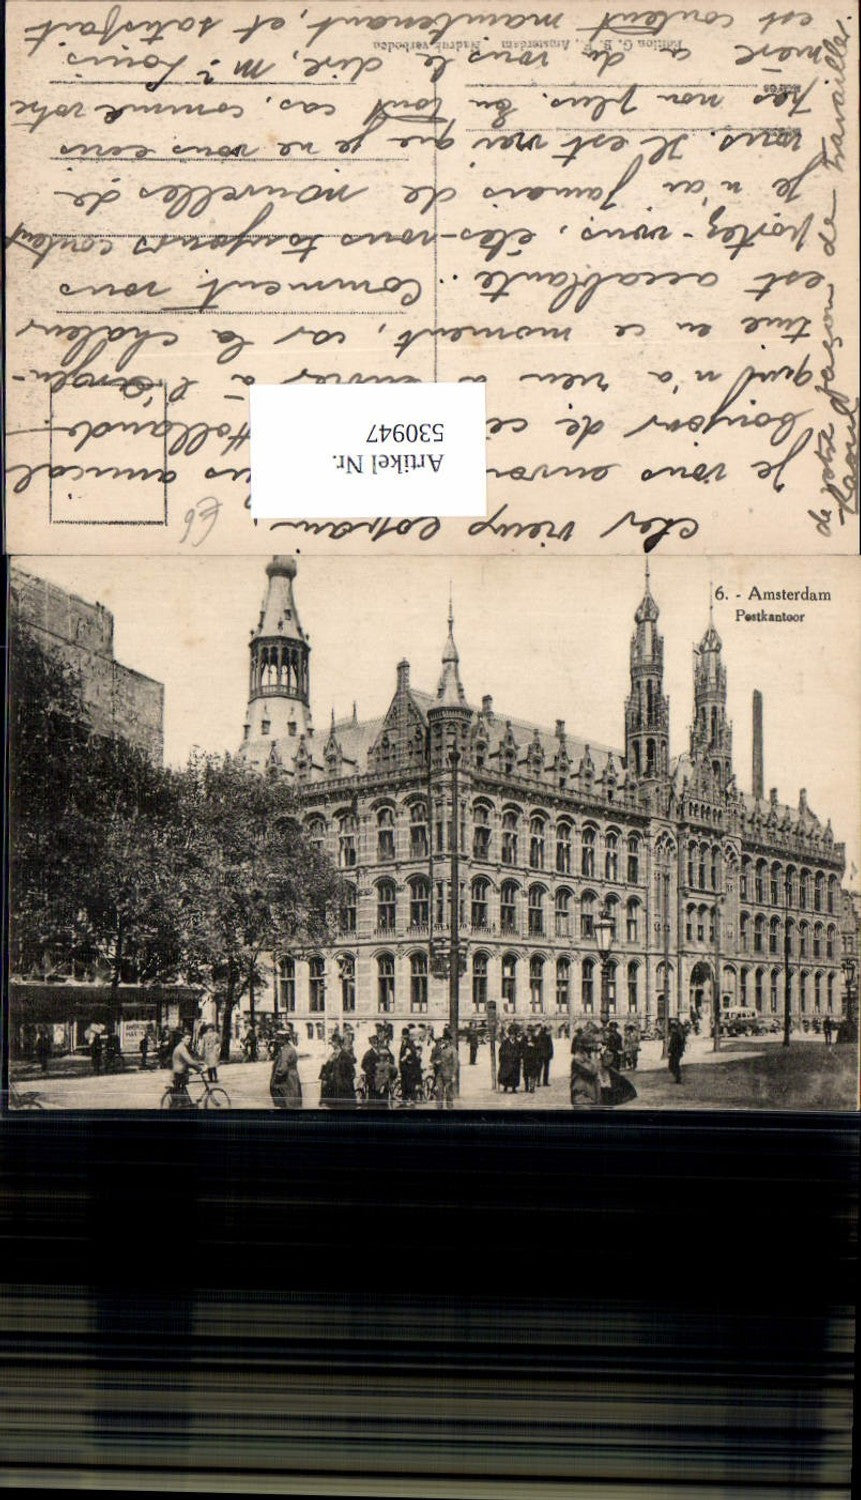 cher vieux copain,
Je vous envoie
us amical
bonjour de ce
Hollande
qui n'a rien à envier à l'Argen-
tine en ce moment, car la chaleur
est accablante. Comment vous
portez-vous, êtes-vous toujours content
je n'ai jamais de nouvelles de
vous. Il est vrai que je ne vous écris
pas non plus. En tout cas, comme votre
mère a dû vous le dire, Mr Louis
est content maintenant, et satisfait
de votre façon de travailler.
Edition G. B. F. Amsterdam Nadruk verboden
Artikel Nr.
530947
6. - Amsterdam
Postkantoor